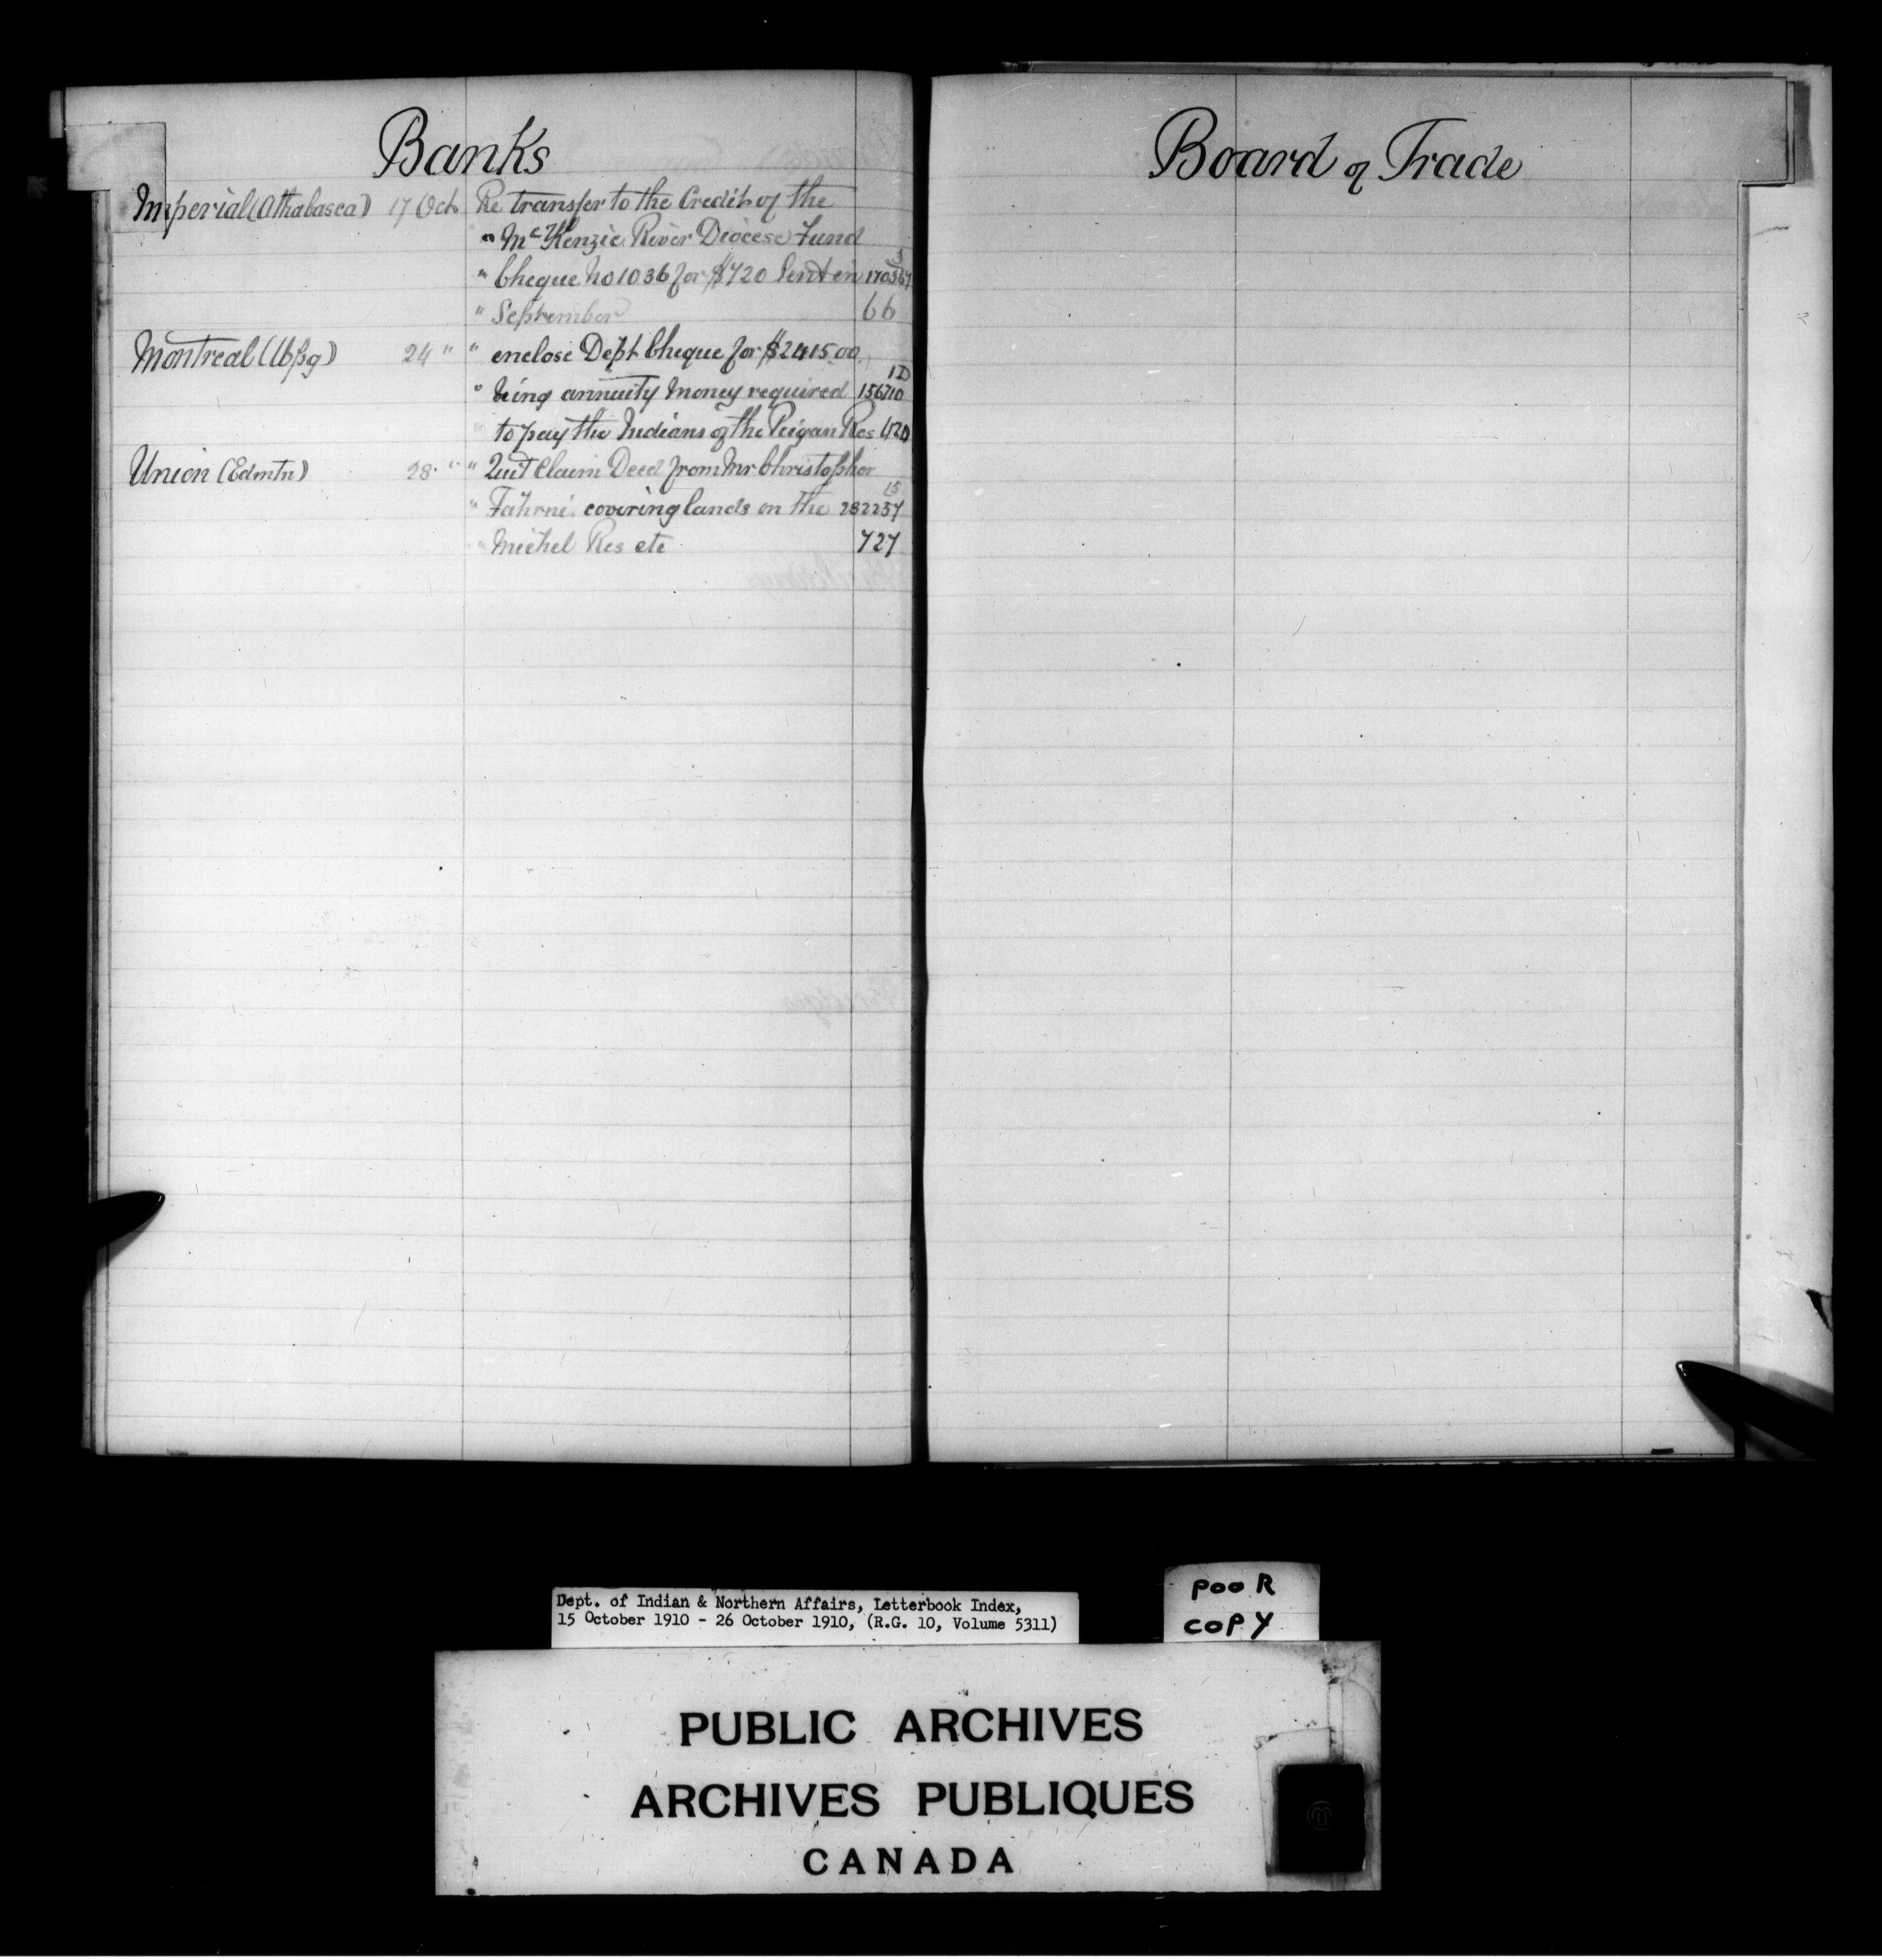 Banks
Imperial (Athabasca) 17 Oct Re transfer to the Credit of the
" McKenzie River Diocese Fund
3
" Cheque No 1036 for $720 Sent in 170367
" September 66
Montreal (Wpg) 24 " " enclose Dept Cheque for $2415.00
1D
" being annuity Money required 156710
to pay the Indians of the Peigan Res 420
Union (Edmtn) 28 " " Quit Claim Deed from Mr Christopher
15
" Fahrni covering lands on the 282257
" Michel Res etc 727
Board of Trade
Dept. of Indian & Northern Affairs, Letterbook Index,
15 October 1910 - 26 October 1910, (R.G. 10, Volume 5311)
POOR
COPY
PUBLIC ARCHIVES
ARCHIVES PUBLIQUES
CANADA